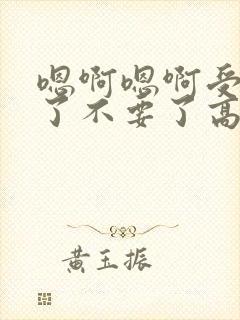 嗯啊嗯啊受
了不要了高
黄玉振